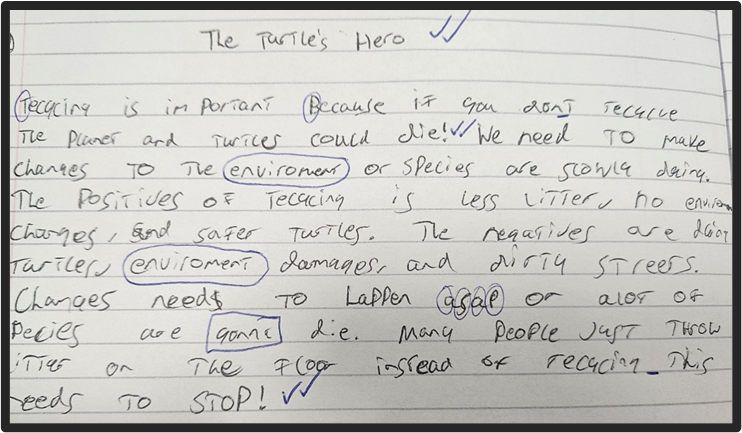 The Turtle's Hero
Tecycing is important Because if you don't recycle
The planet and turtles could die! We need To make
changes To The enviroment or species are slowly dying.
The Positives of recycing is less litter, no enviro
changes, and safer turtles. The negatives are
turtles, enviroment damages, and dirty streets.
Changes needs To happen asap or alot of
pecies are gonna die. Many people just throw
itter on The floor instead of recycing This
eeds To STOP!